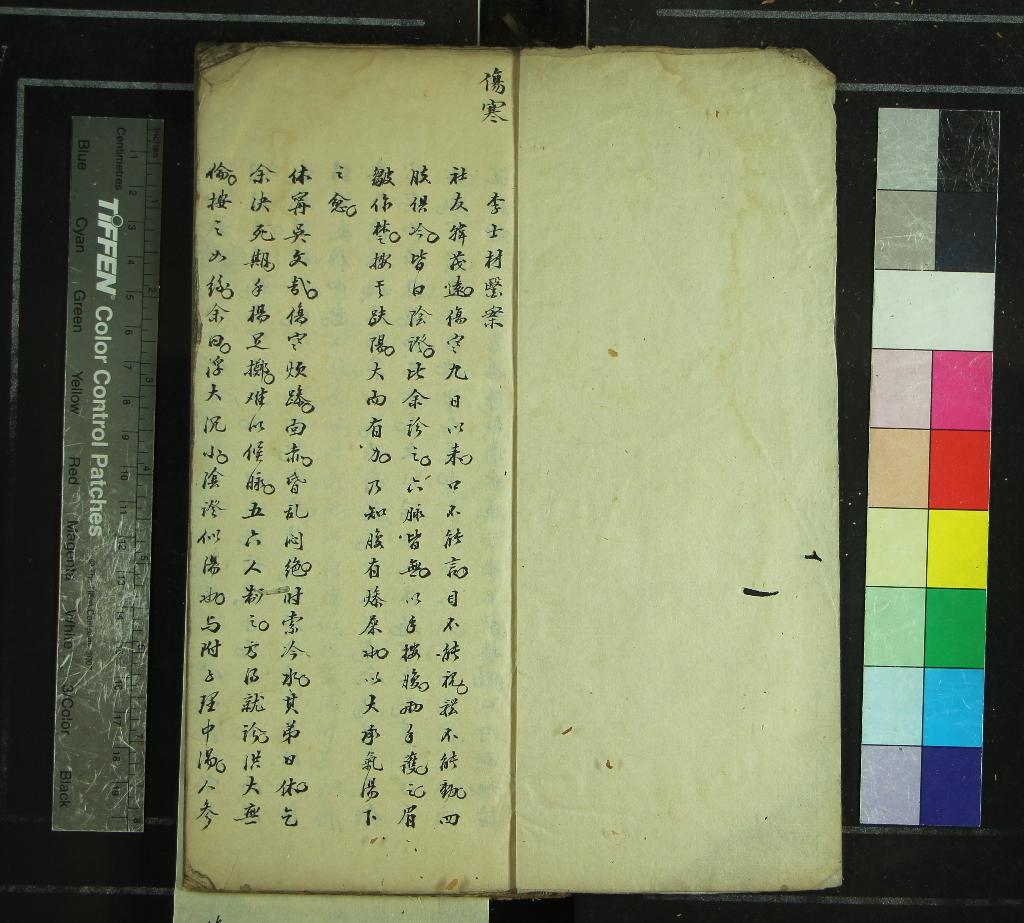 傷寒
李士材醫案
社友韓茂遠傷寒九日以来口不能言目不能視體不能動四
肢俱冷皆曰陰證比余診之六脉皆無以手按腹兩手護之眉
皺作楚按其趺陽大而有力乃知腹有燥屎也以大承氣湯下
之愈
休寧吳文哉傷寒煩躁面赤昏乱闷絶时索冷水其弟曰休乞
余决死期手揚足擲难以候脉五六人制之方得就診洪大無
倫按之如絲余曰浮大沉小陰證似陽也与附子理中湯人參
Centimetres
Inches
TIFFEN Color Control Patches
Blue
Cyan
Green
Yellow
Red
Magenta
White
3/Color
Black